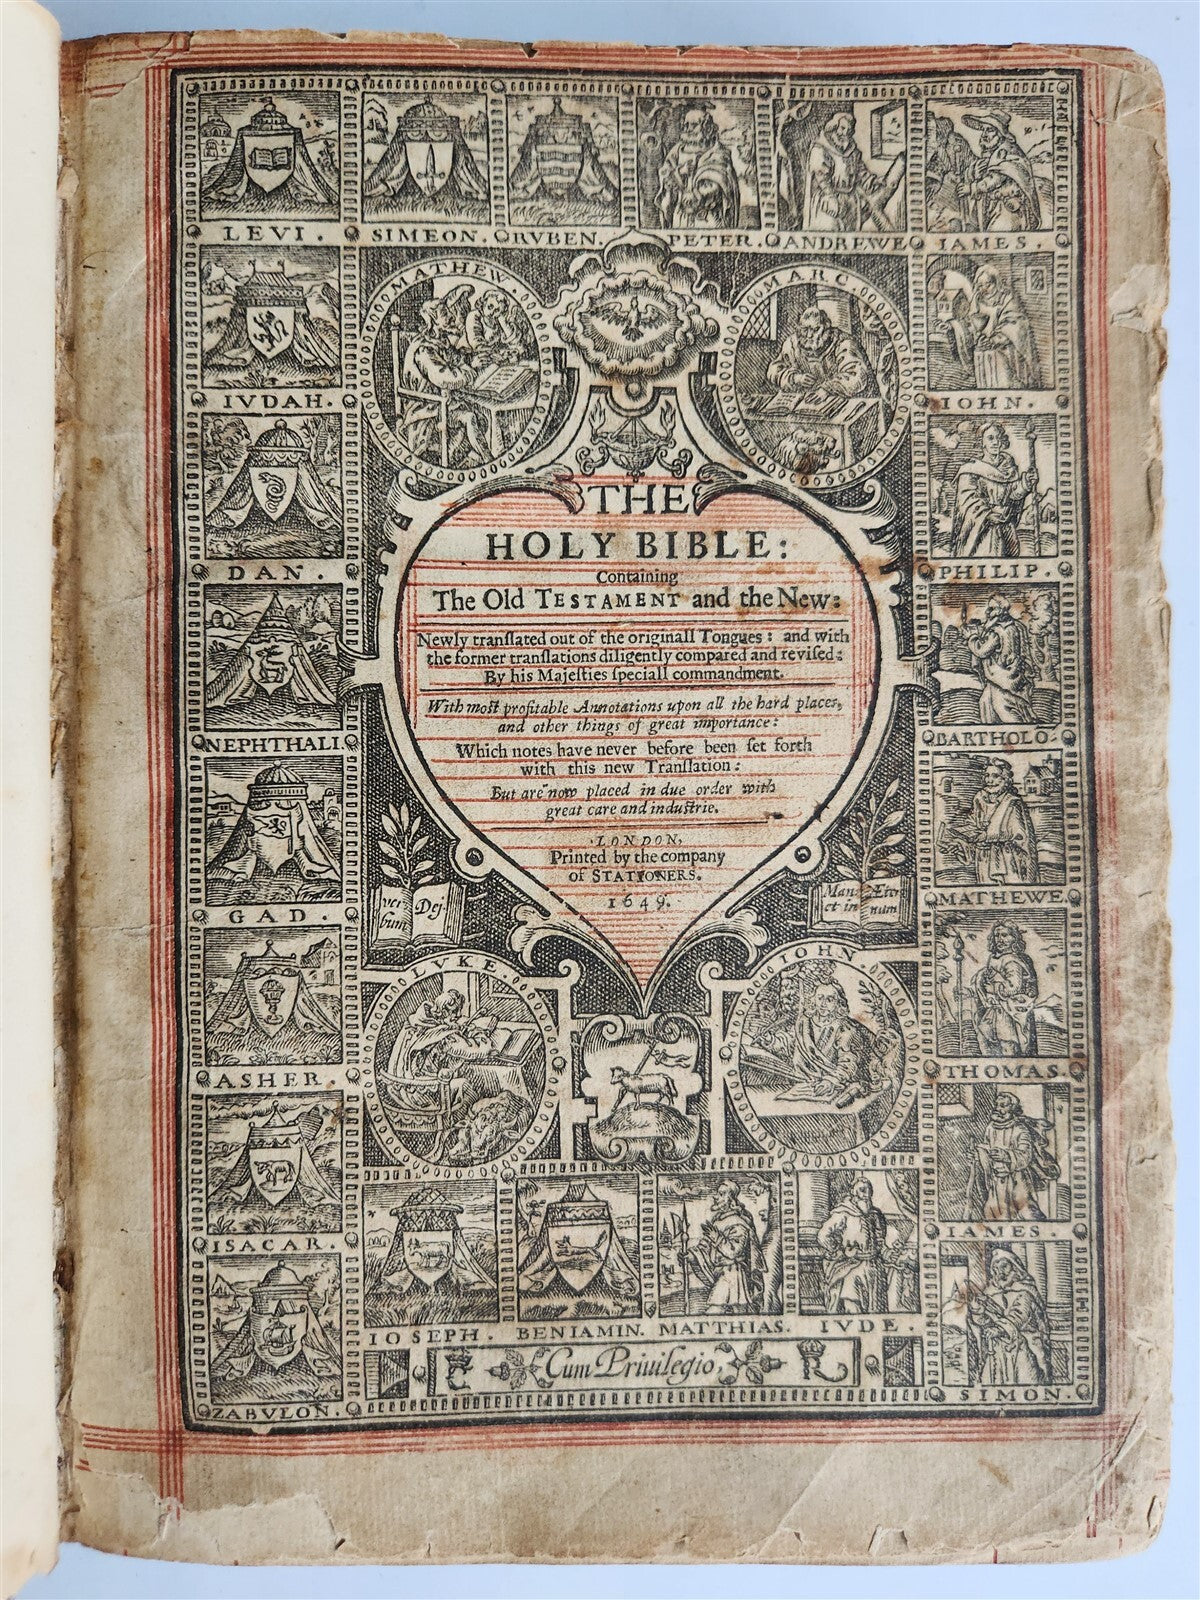 LEVI. SIMEON. RVBEN. PETER. ANDREWE IAMES.
MATHEW. MARC.
IVDAH. IOHN.
DAN. PHILIP.
NEPHTHALI. BARTHOLO.
GAD. MATHEWE.
ASHER. THOMAS.
ISACAR. IAMES.
ZABVLON. SIMON.
THE
HOLY BIBLE:
Containing
The Old TESTAMENT and the New:
Newly tranſlated out of the originall Tongues: and with
the former tranſlations diligently compared and reviſed:
By his Majeſties ſpeciall commandment.
With moſt profitable Annotations upon all the hard places,
and other things of great importance:
Which notes have never before been ſet forth
with this new Tranſlation:
But are now placed in due order with
great care and induſtrie.
LONDON,
Printed by the company
of STATIONERS.
1649.
ver Dej
bum
Man Æter
et in num
LVKE. IOHN.
IOSEPH. BENIAMIN. MATTHIAS. IVDE.
Cum Privilegio,